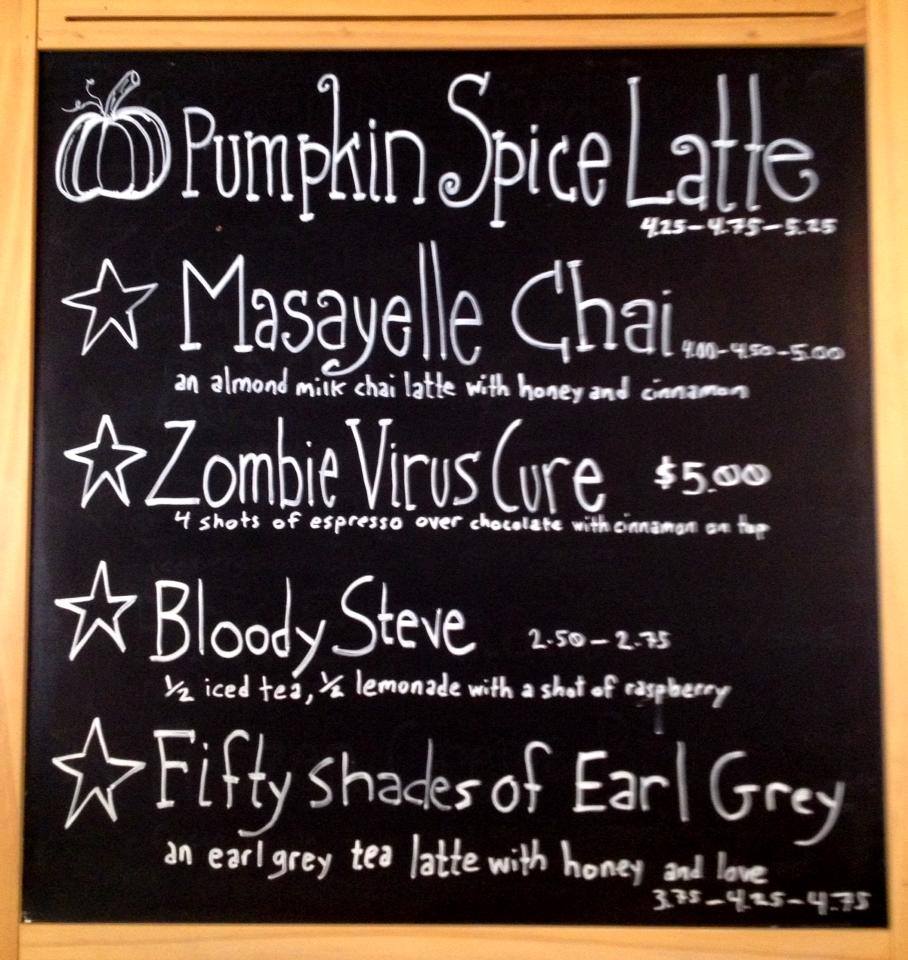 Pumpkin Spice Latte
4.25-4.75-5.25
Masayelle Chai 4.00-4.50-5.00
an almond milk chai latte with honey and cinnamon
Zombie Virus Cure $5.00
4 shots of espresso over chocolate with cinnamon on top
Bloody Steve 2.50-2.75
½ iced tea, ½ lemonade with a shot of raspberry
Fifty shades of Earl Grey
an earl grey tea latte with honey and love
3.75-4.25-4.75